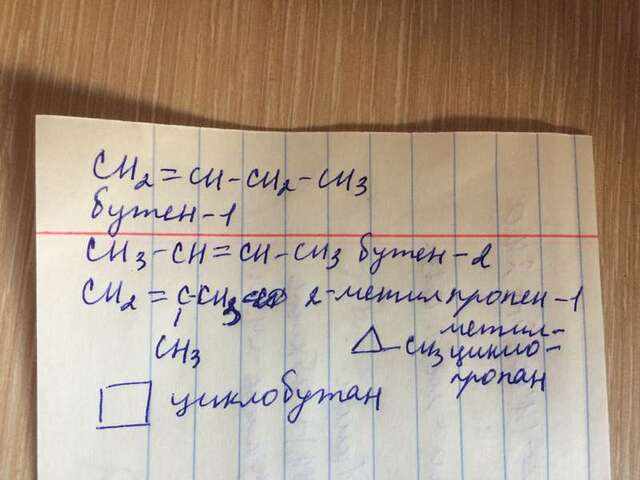 CH2=CH-CH2-CH3
бутен-1
CH3-CH=CH-CH3 бутен-2
CH2=C-CH3 2-метилпропен-1
CH3
CH3 метил-
цикло-
пропан
циклобутан